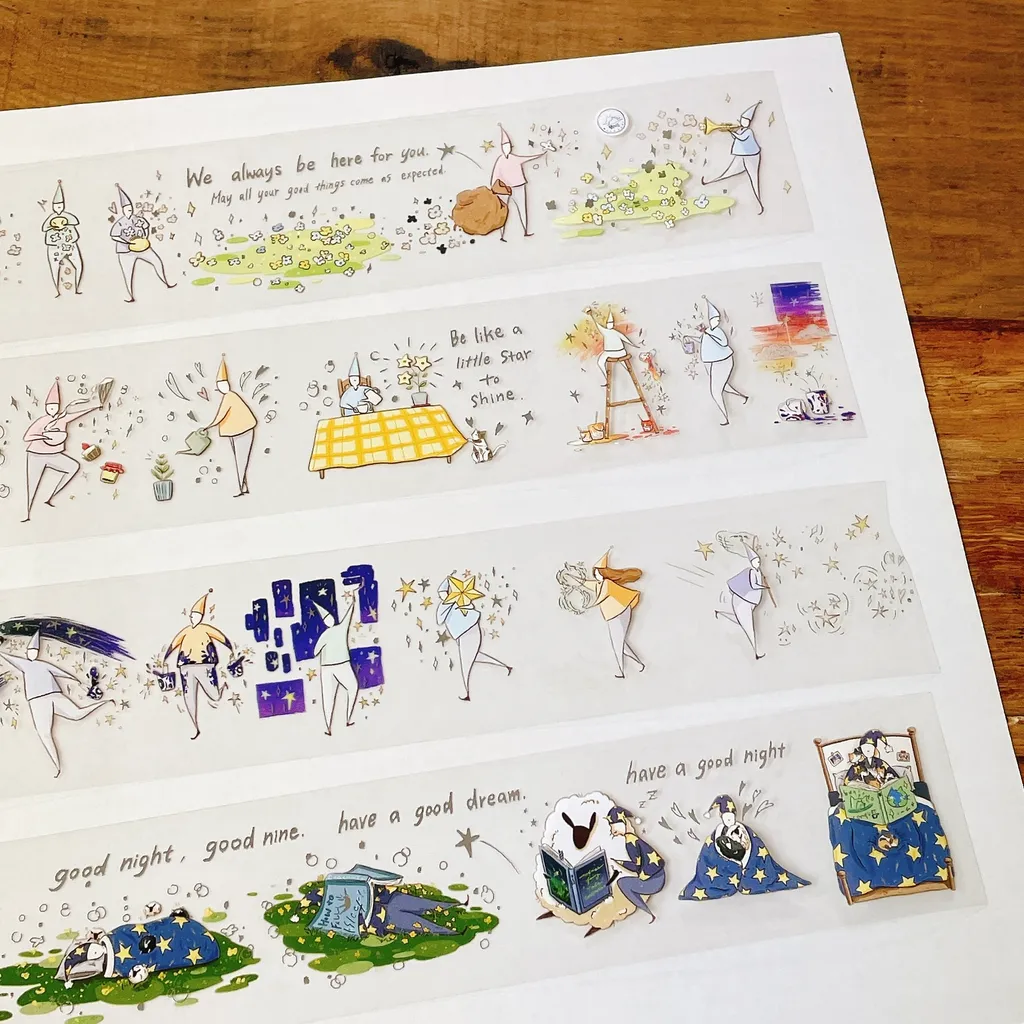 We always be here for you.
May all your good things come as expected.
Be like a
little star
to
shine.
good night, good nine.
have a good dream.
have a good night
z z
How to